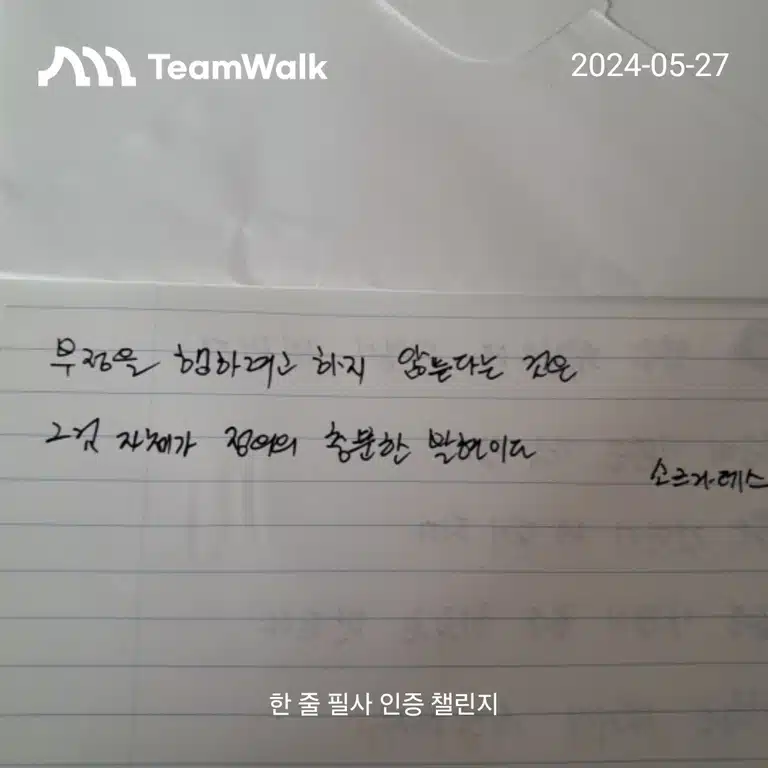 TeamWalk
2024-05-27
부정을 행하려고 하지 않는다는 것은
그것 자체가 정의의 충분한 발현이다
소크라테스
한 줄 필사 인증 챌린지